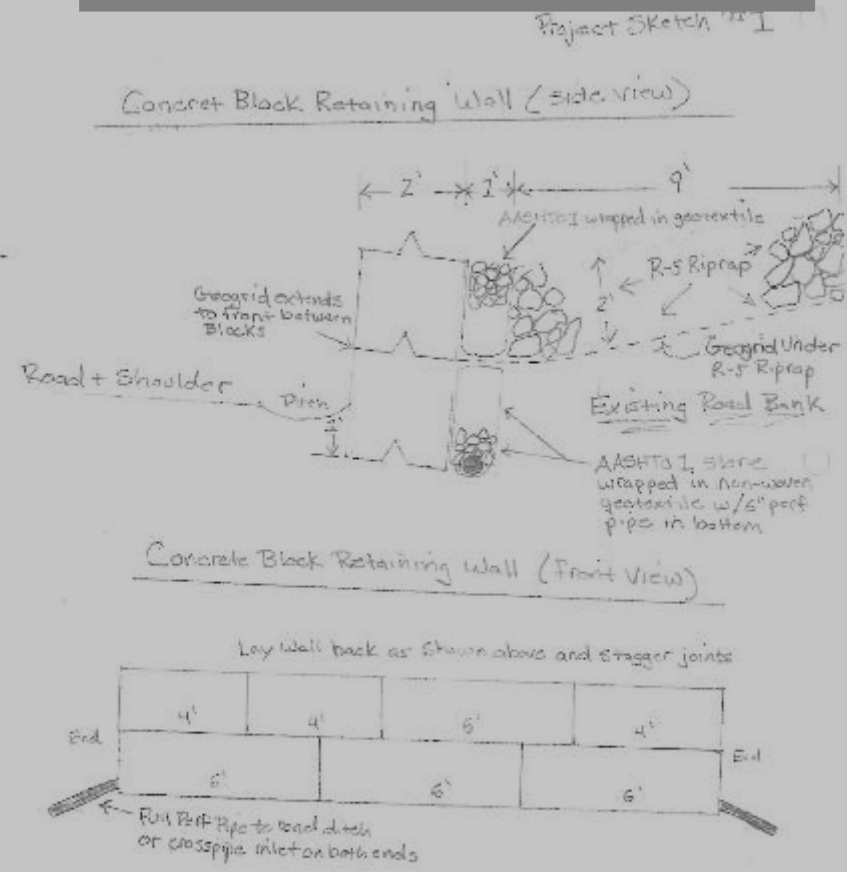 Project Sketch #1
Concret Block Retaining Wall (side view)
2'
1'
9'
AASHTO 1 wrapped in geotextile
R-5 Riprap
2'
Geogrid extends
to front between
Blocks
Geogrid Under
R-5 Riprap
Road + Shoulder
1'
Existing Road Bank
AASHTO 1, stone
wrapped in non-woven
geotextile w/6" perf
pipe in bottom
Concrete Block Retaining Wall (Front View)
Lay Wall back as Shown above and stagger joints
4'
4'
6'
4'
End
End
6'
6'
6'
Full Perf Pipe to road ditch
or crosspipe inlet on both ends